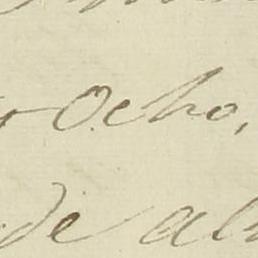 Ocho,
de al